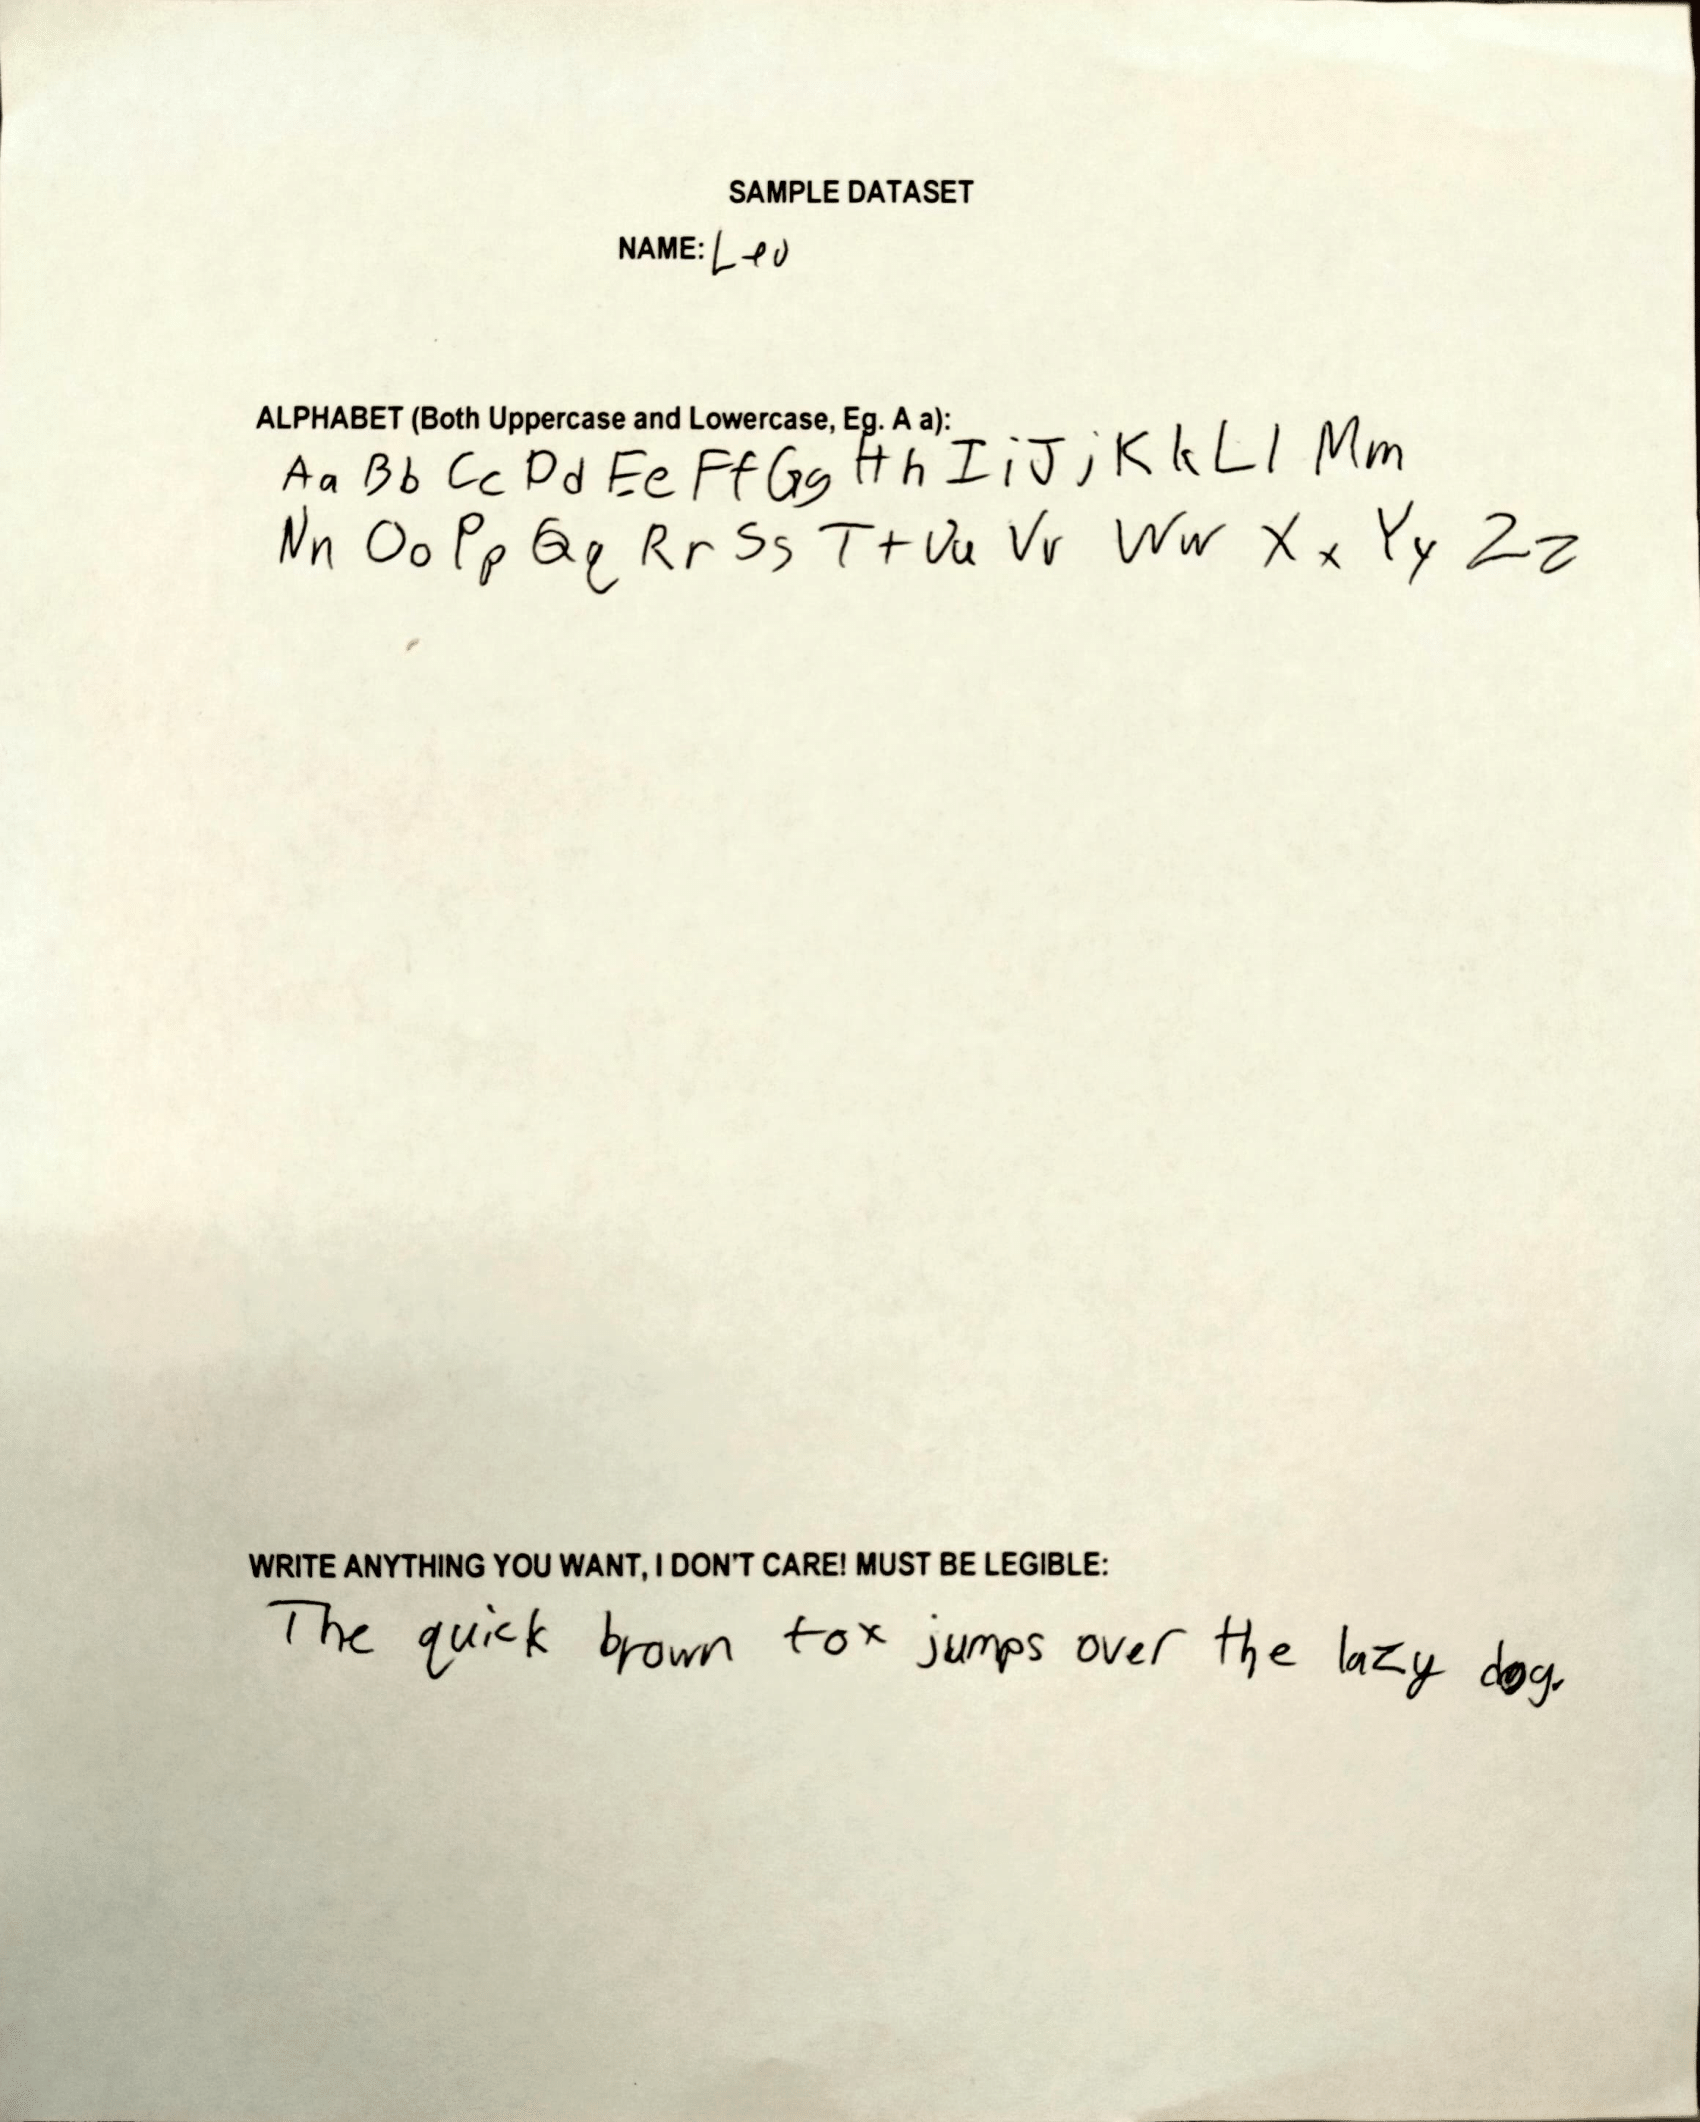 SAMPLE DATASET
NAME: Leo
ALPHABET (Both Uppercase and Lowercase, Eg. A a):
Aa Bb Cc Dd Ee Ff Gg Hh Ii Jj Kk Ll Mm
Nn Oo Pp Qq Rr Ss Tt Uu Vv Ww Xx Yy Zz
WRITE ANYTHING YOU WANT, I DON'T CARE! MUST BE LEGIBLE:
The quick brown fox jumps over the lazy dog.